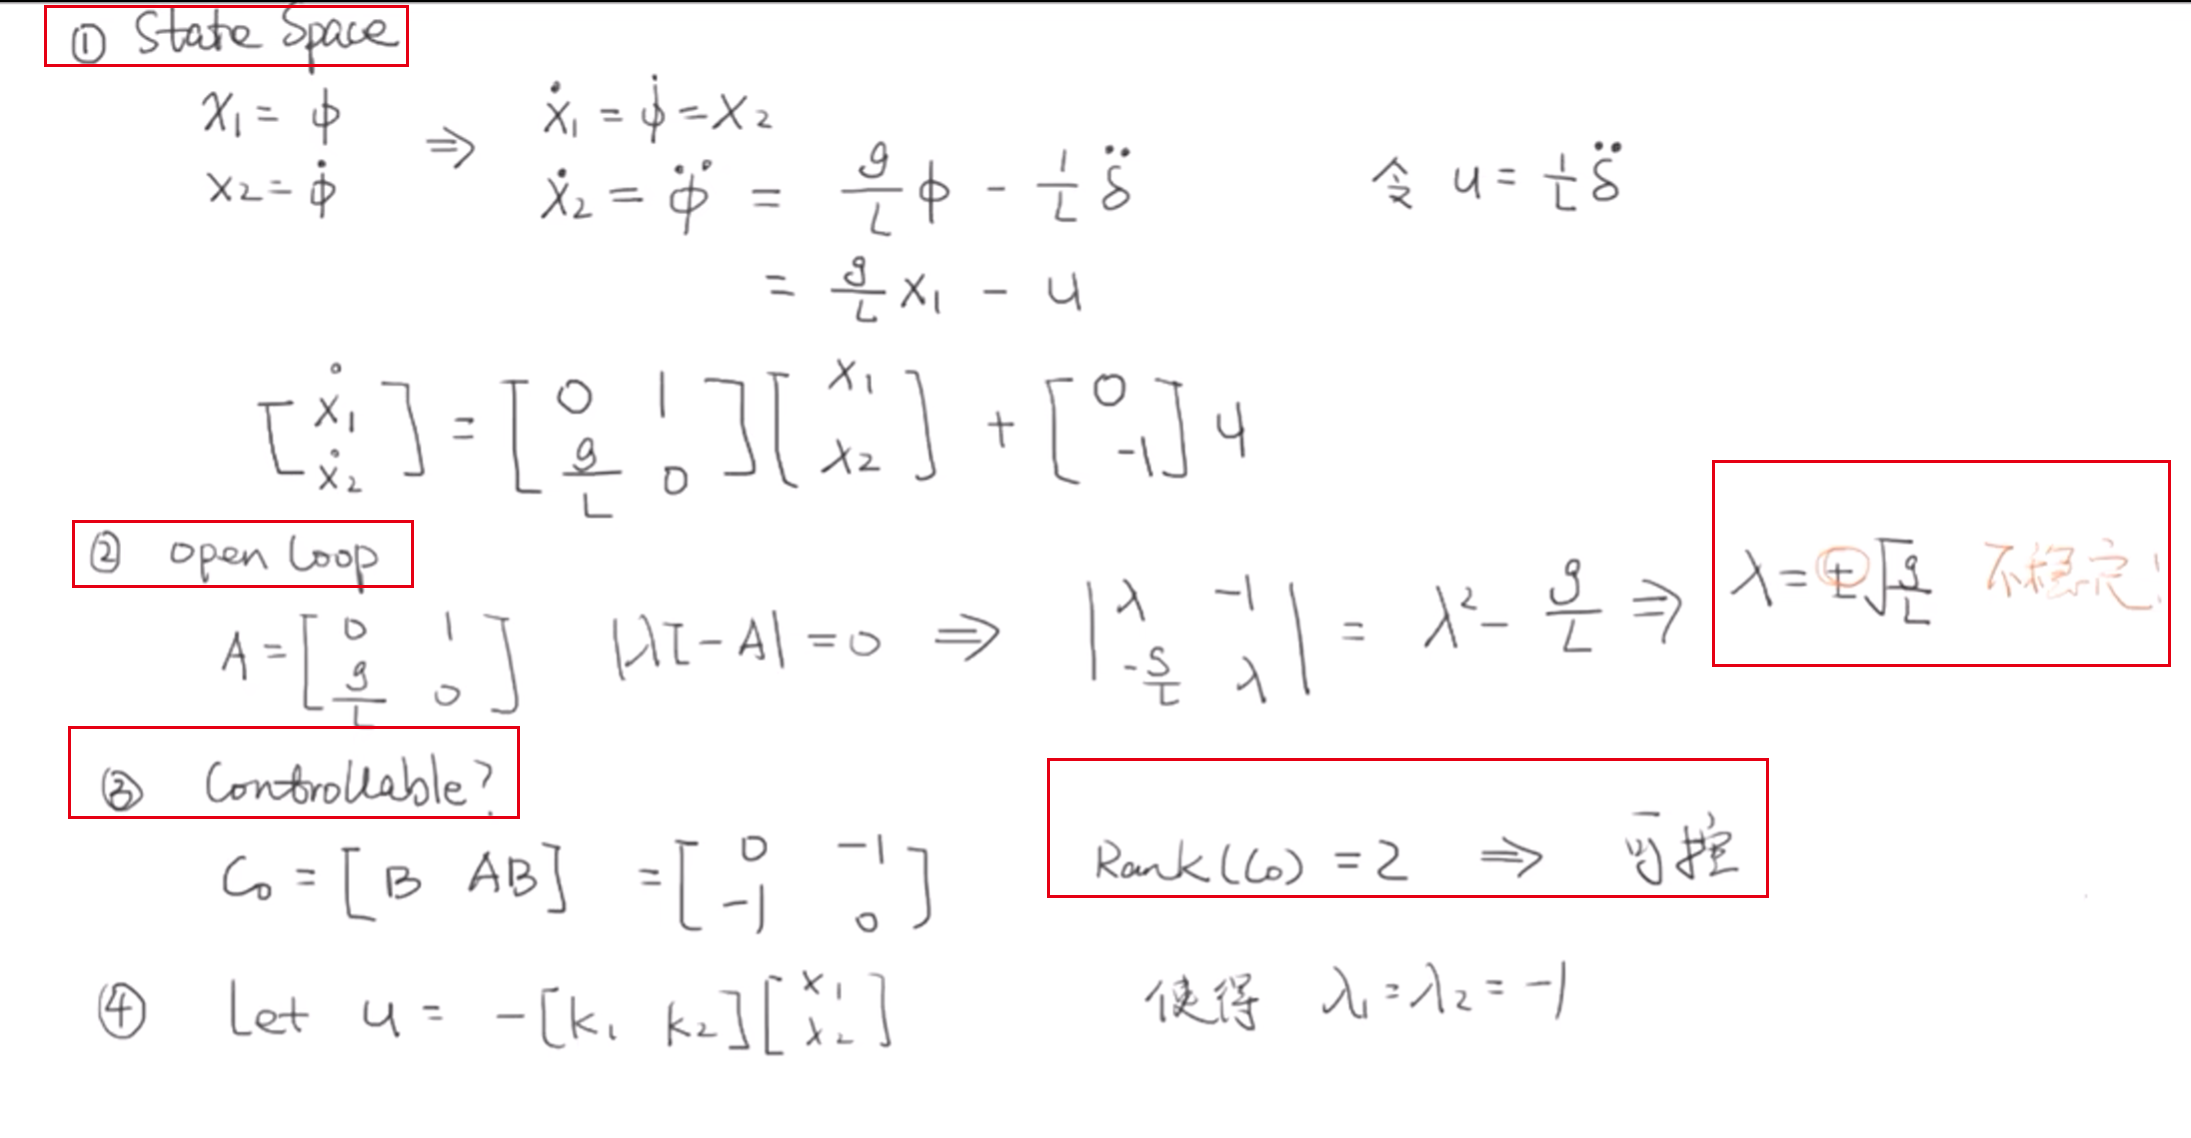 ① State Space
x₁ = ϕ ⇒ ẋ₁ = ϕ̇ = x₂
x₂ = ϕ̇ ẋ₂ = ϕ̈ = g/L ϕ - 1/L δ̈ 令 u = 1/L δ̈
= g/L x₁ - u
[ẋ₁ ẋ₂] = [0 1; g/L 0] [x₁ x₂] + [0 -1] u
② open loop
A = [0 1; g/L 0] |λI - A| = 0 ⇒ |λ -1; -g/L λ| = λ² - g/L ⇒ λ = ±√(g/L) 不稳定!
③ Controllable?
Co = [B AB] = [0 -1; -1 0] Rank(Co) = 2 ⇒ 可控
④ Let u = -[k₁ k₂] [x₁ x₂] 使得 λ₁ = λ₂ = -1